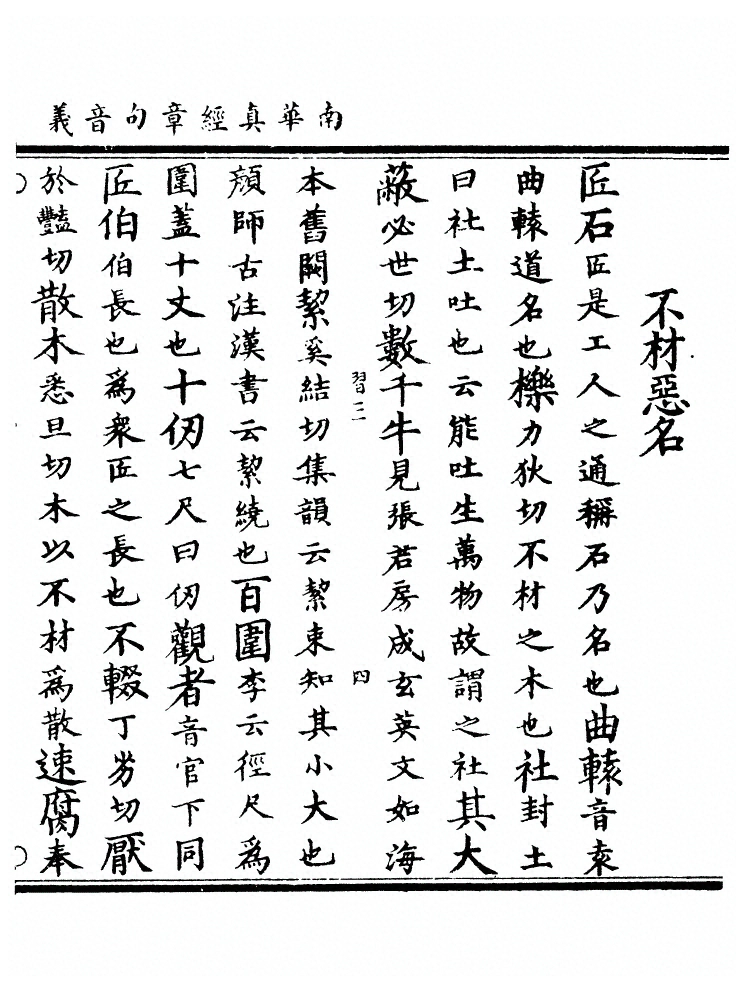 南華真經章句音義
不材惡名
匠石匠是工人之通稱石乃名也曲轅音袁
曲轅道名也櫟力狄切不材之木也社封土
曰社土吐也云能吐生萬物故謂之社其大
蔽必世切數千牛見張君房成玄英文如海
習三
四
本舊闕絜奚結切集韻云絜束知其小大也
顏師古注漢書云絜繞也百圍李云徑尺為
圍蓋十丈也十仞七尺曰仞觀者音官下同
匠伯伯長也為衆匠之長也不輟丁劣切厭
於豔切散木悉旦切木以不材為散速腐奉